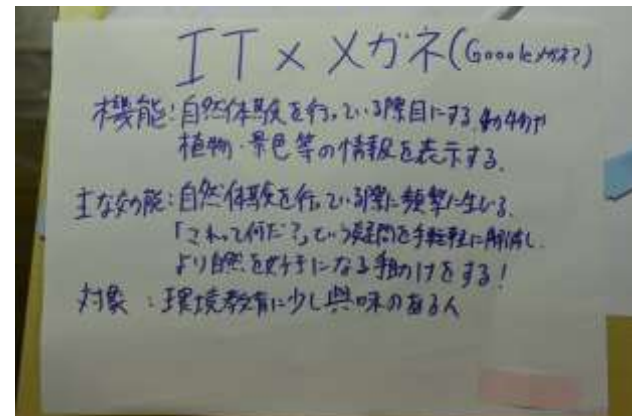 IT×メガネ(Googleメガネ?)
機能:自然体験を行っている際目にする動物や
植物・景色等の情報を表示する.
主な効能:自然体験を行っている際に頻繁に生じる.
「これって何だ?」という疑問を手軽に解消し.
より自然を好きになる手助けをする!
対象:環境教育に少し興味のある人